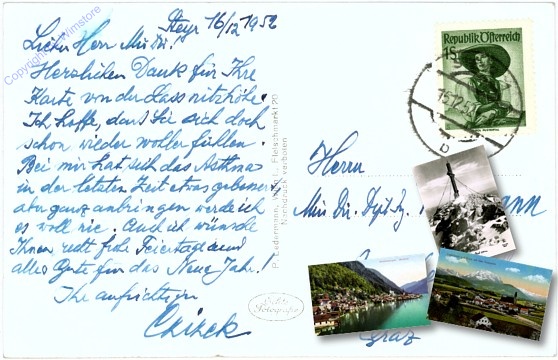 Steyr 16/12 1952
Lieber Herr Min. Di.!
Herzlichen Dank für Ihre
Karte von der Lassnitzhöhe.
Ich hoffe, dass Sie sich doch
schon wieder woller fühlen.
Bei mir hat sich das Asthma
in der letzten Zeit etwas gebessert
aber ganz anbringen werde ich
es woll nie. Auch ich wünsche
Ihnen recht frohe Feiertage und
alles Gute für das Neue Jahr!
Ihr aufrichtiger
Czizek
P. Ledermann, Wien I., Fleischmarkt 20
Nachdruck verboten
Republik Österreich
1S
Herrn
Min. Di. Dipl. Ing.
Graz
Copyright by Wimstore